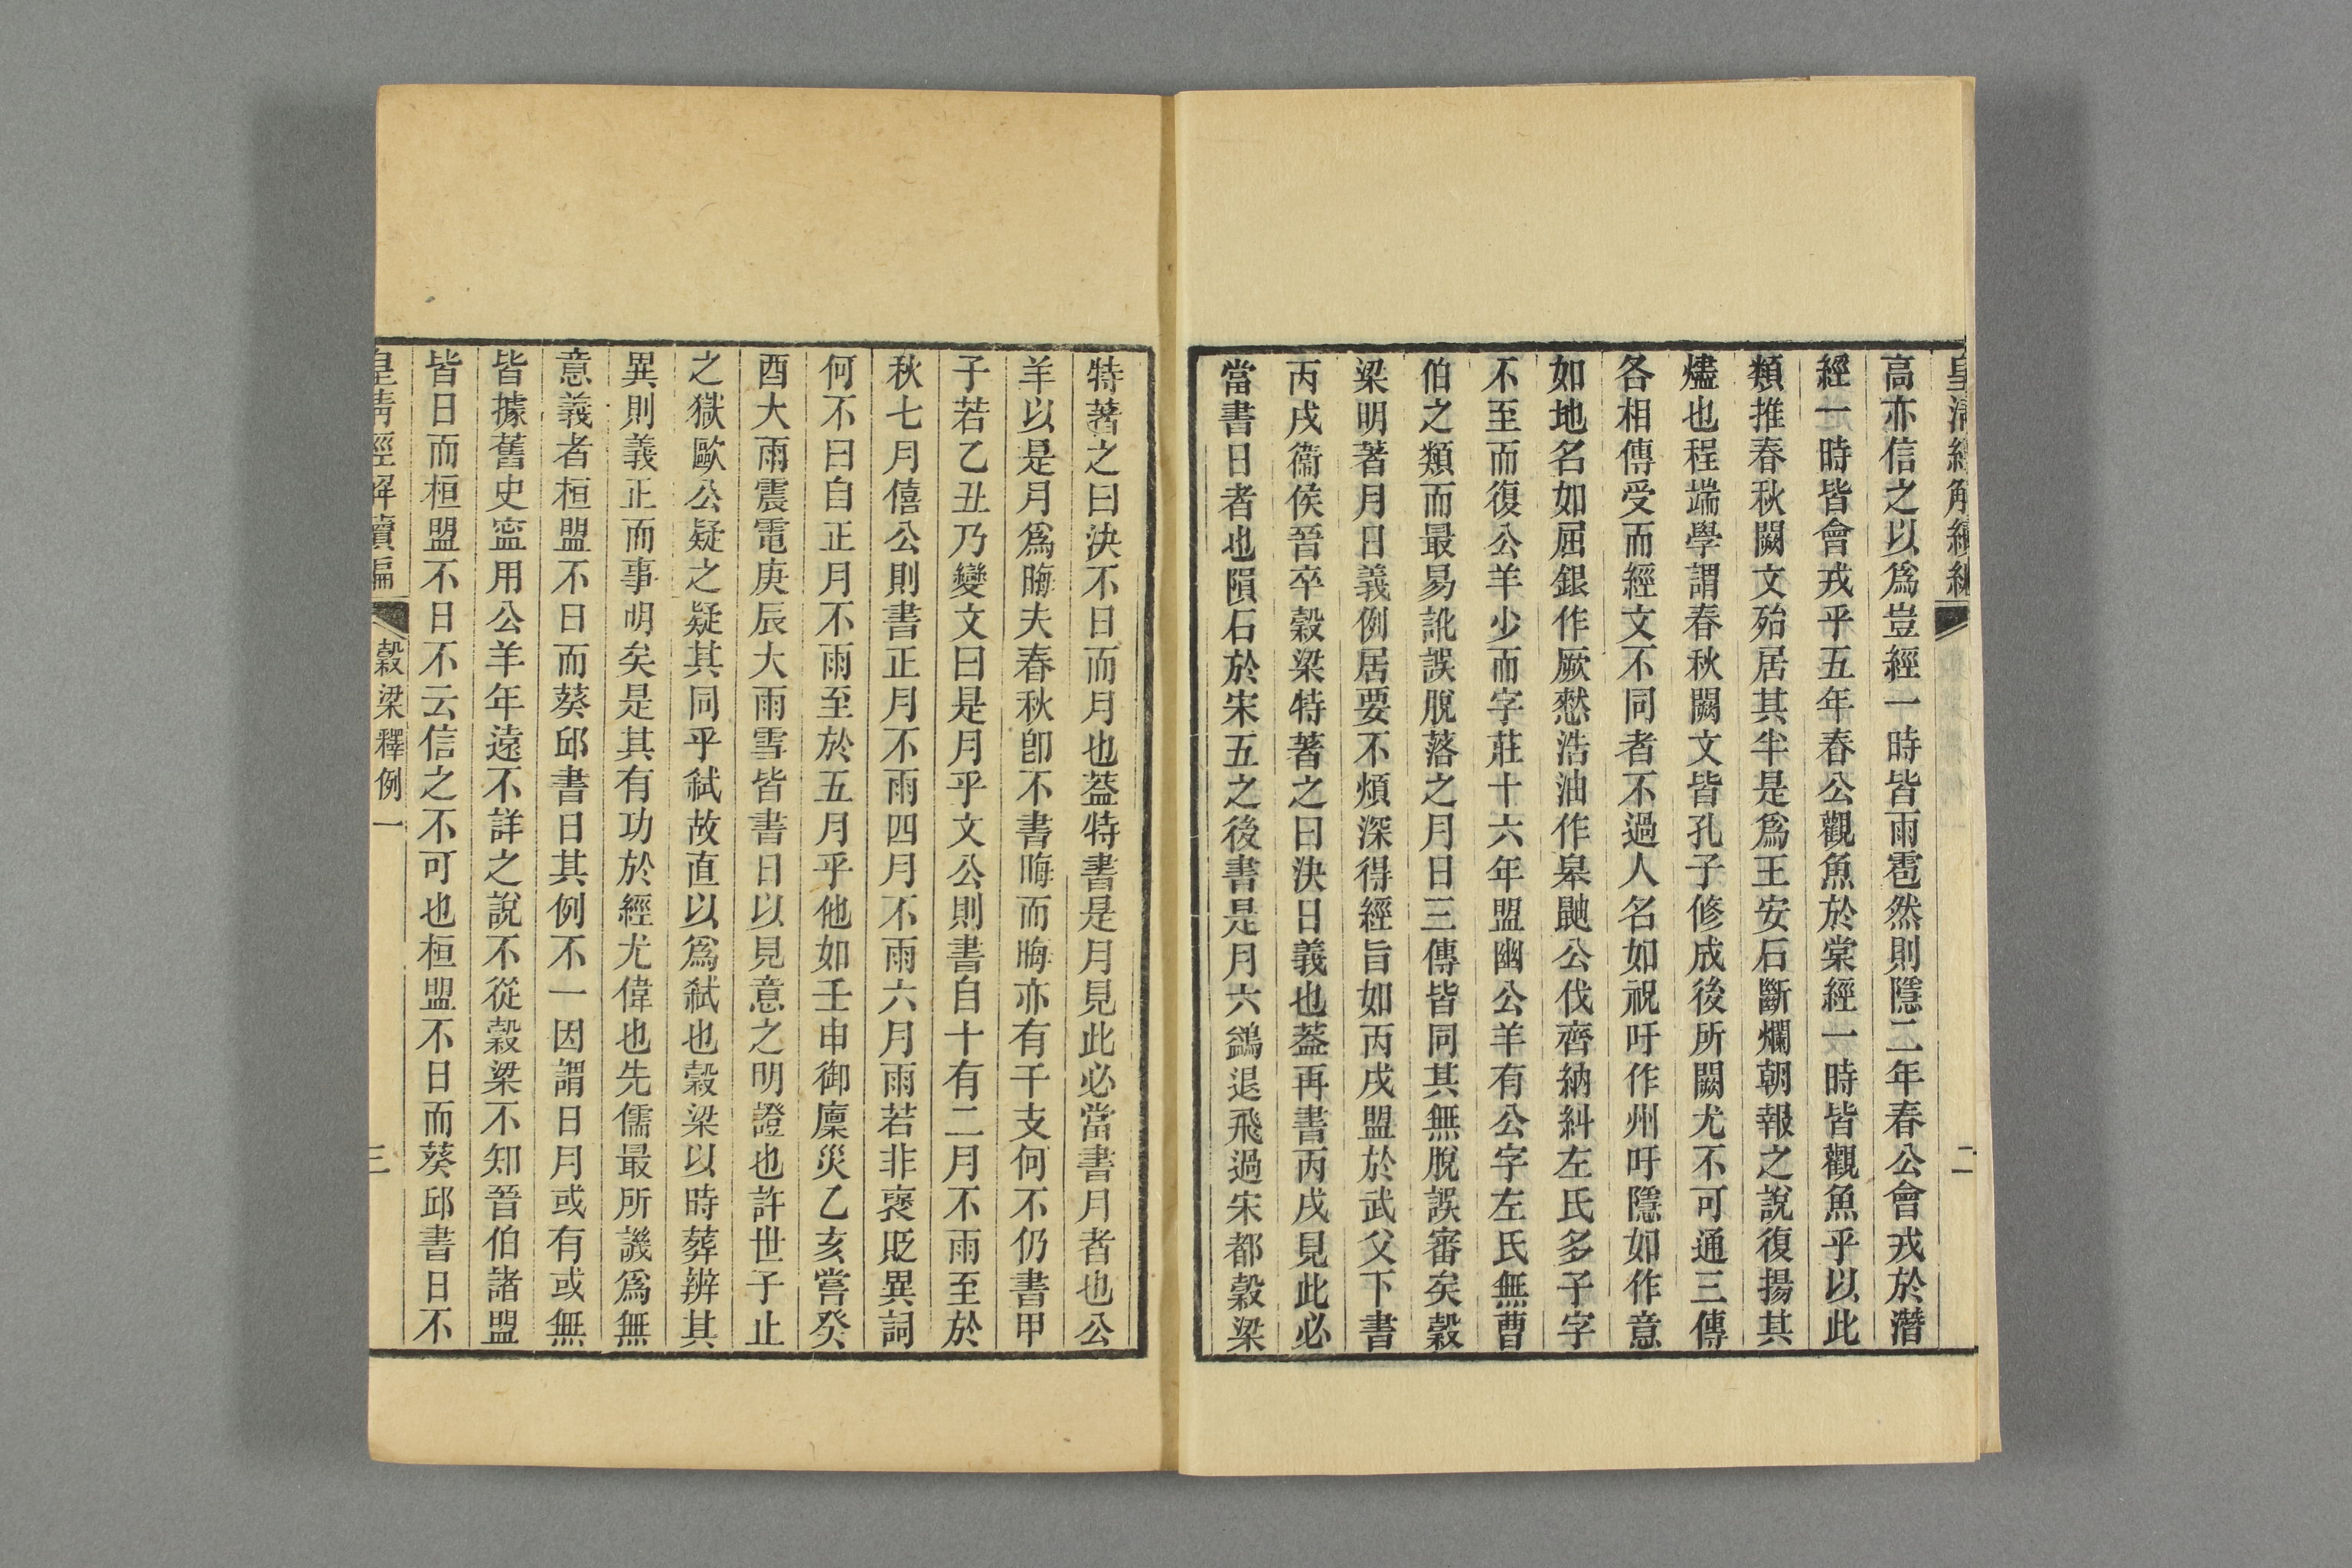 皇清經解續編
二
高亦信之以爲豈經一時皆雨雹然則隱二年春公會戎於潛
經一時皆會戎乎五年春公觀魚於棠經一時皆觀魚乎以此
類推春秋闕文殆居其半是爲王安石斷爛朝報之說復揚其
燼也程端學謂春秋闕文皆孔子修成後所闕尤不可通三傳
各相傳受而經文不同者不過人名如祝吁作州吁隱如作意
如地名如屈銀作厥憖浩油作臯鼬公伐齊納糾左氏多子字
不至而復公羊少而字莊十六年盟幽公羊有公字左氏無曹
伯之類而最易訛誤脫落之月日三傳皆同其無脫誤審矣穀
梁明著月日義例居要不煩深得經旨如丙戌盟於武父下書
丙戌衞侯晉卒穀梁特著之曰決日義也蓋再書丙戌見此必
當書日者也隕石於宋五之後書是月六鷁退飛過宋都穀梁
特著之曰決不日而月也蓋特書是月見此必當書月者也公
羊以是月爲晦夫春秋卽不書晦而晦亦有干支何不仍書甲
子若乙丑乃變文曰是月乎文公則書自十有二月不雨至於
秋七月僖公則書正月不雨四月不雨六月雨若非褒貶異詞
何不曰自正月不雨至於五月乎他如壬申御廩災乙亥嘗癸
酉大雨震電庚辰大雨雪皆書日以見意之明證也許世子止
之獄歐公疑之疑其同乎弒故直以爲弒也穀梁以時葬辨其
異則義正而事明矣是其有功於經尤偉也先儒最所譏爲無
意義者桓盟不日而葵邱書日其例不一因謂日月或有或無
皆據舊史寍用公羊年遠不詳之說不從穀梁不知晉伯諸盟
皆日而桓盟不日不云信之不可也桓盟不日而葵邱書日不
皇清經解續編
穀梁釋例一
三